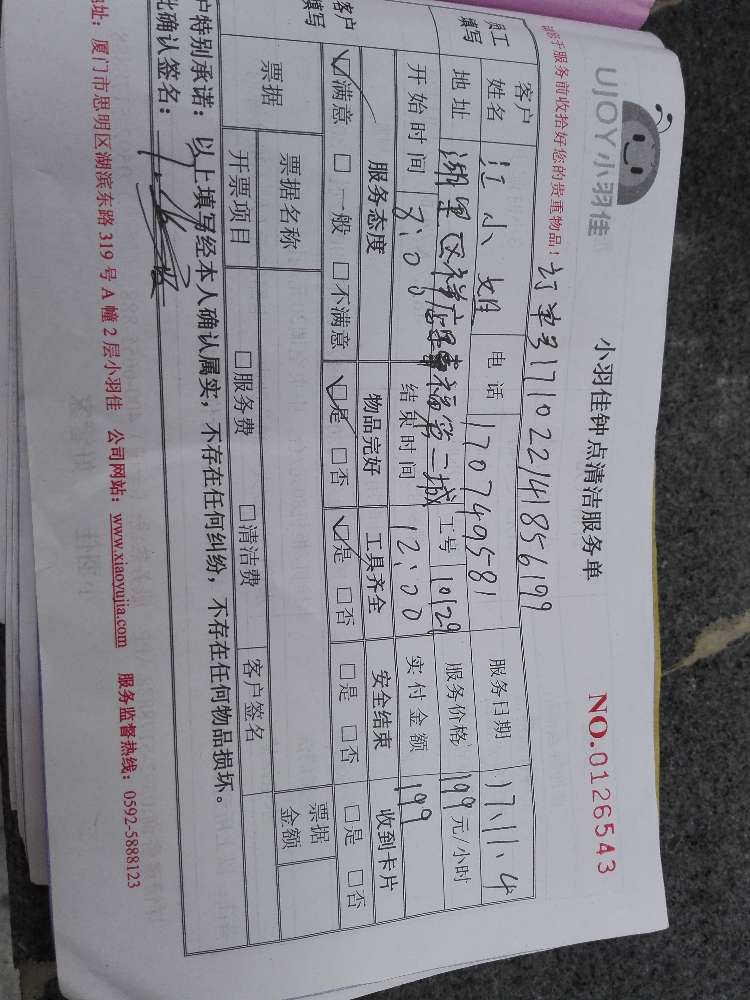 UJOY小羽佳
小羽佳钟点清洁服务单
NO.0126543
服务前收拾好您的贵重物品！
订单号171022141856199
客户
姓名
江小姐
电话
170749581
服务日期
17.11.4
员工
填写
地址
湖里区祥店里幸福第二城
工号
10129
服务价格
199元/小时
开始时间
8:00
结束时间
12:00
实付金额
199
客户
填写
服务态度
物品完好
工具齐全
安全结束
收到卡片
☑满意 □一般 □不满意
☑是 □否
☑是 □否
□是 □否
□是 □否
票据
票据名称
票据
金额
开票项目
□服务费
□清洁费
客户签名
户特别承诺：以上填写经本人确认属实，不存在任何纠纷，不存在任何物品损坏。
此确认签名：
地址：厦门市思明区湖滨东路319号A幢2层小羽佳 公司网站：www.xiaoyujia.com 服务监督热线：0592-5888123